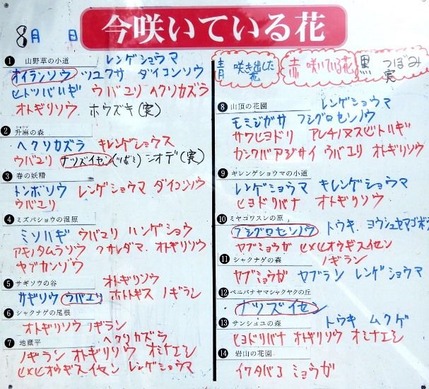 8月 日 今咲いている花
青 咲き出した花 赤 咲いている花 黒 つぼみ 実
1 山野草の小道 レンゲショウマ
オイランソウ ツユクサ ダイコンソウ
ヒトツバハギ ウバユリ ヘクソカズラ
オトギリソウ ホウズキ(実)
2 升麻の森
ヘクソカズラ キレンゲショウマ
ウバユリ ナツズイセン(つぼみ) シオデ(実)
3 春の妖精
トンボソウ レンゲショウマ ダイコンソウ
ウバユリ
4 ミズバショウの湿原
ミソハギ ウバユリ ハンゲショウ
アキノタムラソウ クサレダマ、オトギリソウ
ヤブカンゾウ
5 サギソウの谷 オトギリソウ
サギソウ ウバユリ ホトトギス ノギラン
6 シャクナゲの尾根
オトギリソウ ノギラン
7 地蔵平 ヘクソカズラ
ノギラン オトギリソウ オミナエシ
ヒメヒオウギズイセン レンゲショウマ
8 山頂の花園 レンゲショウマ
モミジガサ フシグロセンノウ
サワヒヨドリ アレチノヌスビトハギ
カシワバアジサイ ウバユリ オトギリソウ
9 ヤレンゲショウマの小道
レンゲショウマ キレンゲショウマ
ヒヨドリバナ オトギリソウ
10 ミヤコワスレの原
フシグロセンノウ トウキ、ヨウシュヤマゴボウ
ヤブミョウガ ヒメヒオウギズイセン
11 シャクナゲの森 ノギラン
ヤブミョウガ ヤブラン レンゲショウマ
12 ベニバナヤマシャクヤクの丘
ナツズイセン
13 サンシュユの森 トウキ ムクゲ
ヒヨドリバナ オトギリソウ オミナエシ
14 岩山の花園
イワタバコ ミョウガ